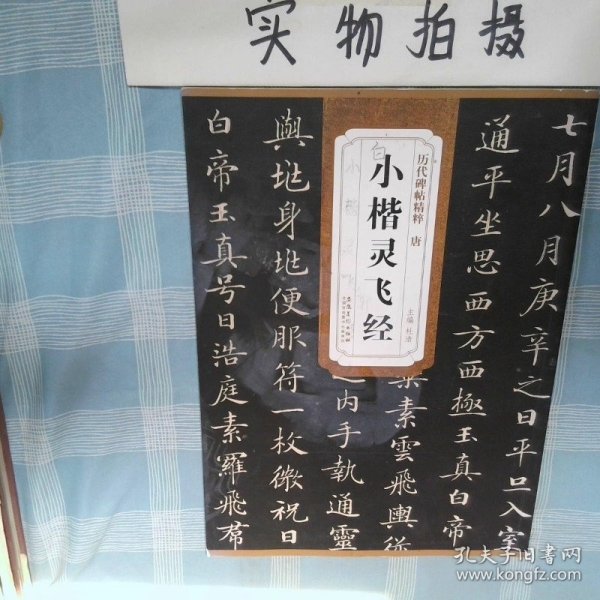 实物拍摄
历代碑帖精粹 唐
小楷灵飞经
主编 杜浩
七月八月庚辛之日平旦入室
通平坐思西方西極玉真白帝
素雲飛輿從
内手執通靈
輿地身地便服符一枚微祝曰
白帝玉真号曰浩庭素羅飛裙
孔夫子旧书网
www.kongfz.com